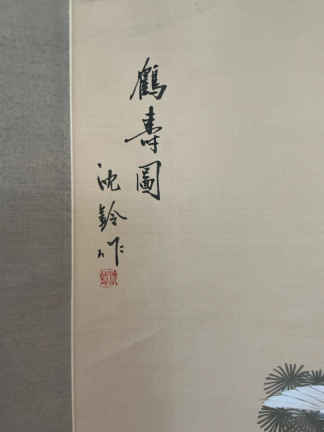 鶴壽圖
沈鈴作